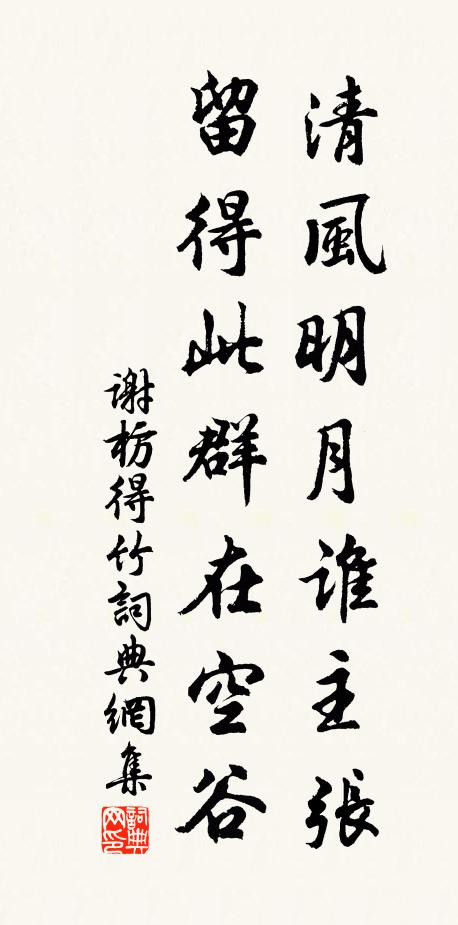 清風明月誰主張
留得此群在空谷
謝枋得竹詞典網集
詞典网印